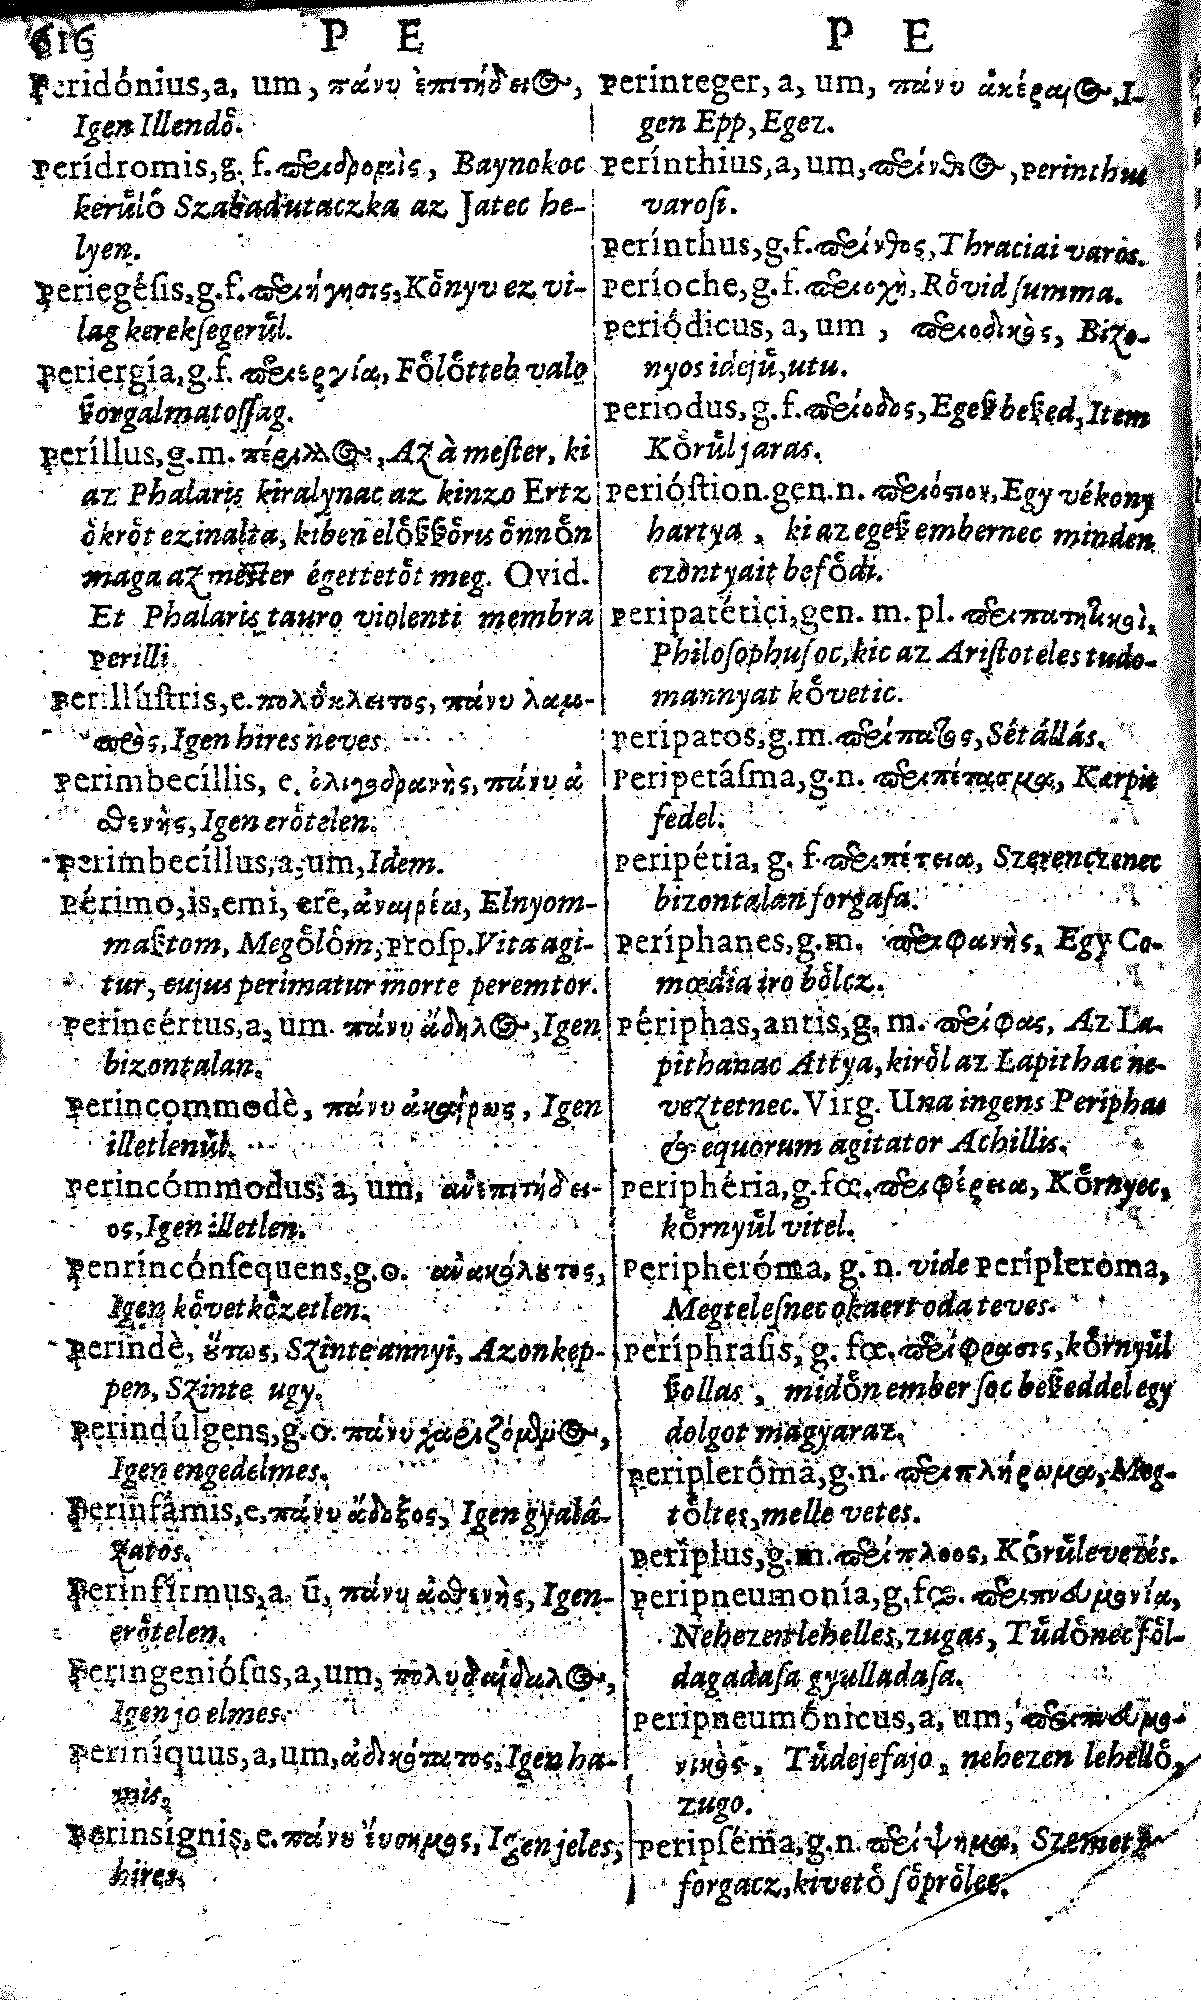 616 P E P E
Peridónius, a, um, πάνυ ἐπιτήδειος,
Igen Illendoͤ.
Perídromis, g. f. περιδρομὶς, Baynokoc
keruͤloͤ Szabadutaczka az Jatec he-
lyen.
Periegésis, g. f. περιήγησις, Koͤnyv ez vi-
lag kerekſegeruͤl.
Periergía, g. f. περιεργία, Foͤloͤtteb valo
ßorgalmatoſſag.
Períllus, g. m. πέριλλος, Az à meſter, ki
az Phalaris kiralynac az kinzo Ertz
oͤkroͤt czinalta, kiben eloͤßßoͤris oͤnnoͤn
maga az meſter égettetoͤt meg. Ovid.
Et Phalaris tauro violenti membra
Perilli
Perillúſtris, e. πολύκλειτος, πάνυ λαμ-
πρὸς, Igen hires neves.
Perimbecíllis, e. ὀλιγοδρανὴς, πάνυ ἀ
σθενὴς, Igen eroͤtelen.
Perimbecíllus, a, um, Idem.
Périmo, is, emi, erē, ἀναιρέω, Elnyom-
maßtom, Megoͤloͤm, Proſp. Vita agi-
tur, cujus perimatur morte peremtor.
Perincértus, a, um. πάνυ ἄδηλος, Igen
bizontalan.
Perincommodè, πάνυ ἀκαίρως, Igen
illetlenuͤl.
Perincómmodus, a, um, ανεπιτήδει-
ος, Igen illetlen.
Penrincónſequens, g. o. ανακόλυτος,
Igen koͤvetkoͤzetlen.
Perindè, ὅπως, Szinte annyi, Azonkep-
pen, Szinte ugy.
Perindúlgens, g. o. πάνυ χαριζόμενος,
Igen engedelmes.
Perinfâmis, e. πάνυ ἄδοξος, Igen gyalâ-
zatos.
Perinfírmus, a, ū, πάνυ ἀσθενὴς, Igen-
eroͤtelen.
Peringeniósus, a, um, πολυδαίδαλος,
Igen jo elmes.
Periníquus, a, um, ἀδικότατος, Igen ha-
mis.
Perinsígnis, e. πάνυ ἔνσημος, Igen jeles,
hires.
Perínteger, a, um, πάνυ ἀκέραιος, I-
gen Epp, Egez.
Perínthius, a, um, περίνθιος, Perinthus
varoſi.
Perínthus, g. f. περίνθος, Thraciai varos.
Períoche, g. f. περιοχὴ, Roͤvid ſumma.
Periódicus, a, um, περιοδικὸς, Bizo-
nyos idejuͤ, utu.
Periodus, g. f. περίοδος, Egeß beßed, Item
Koͤruͤl jaras.
Perióſtion. gen. n. περιόστιον, Egy vékony
hartya, ki az egeß embernec minden
czontyait befoͤdi.
Peripatétici, gen. m. pl. περιπατητικοὶ,
Philoſophuſoc, kic az Ariſtoteles tudo-
mannyat koͤvetic.
Peripatos, g. m. περίπατος, Sétállás.
Peripetáſma, g. n. περιπέτασμα, Karpit
fedel.
Peripétia, g. f. περιπέτεια, Szerenczenec
bizontalan forgaſa.
Períphanes, g. m. περιφανὴς, Egy Co-
mœdia iro boͤlcz.
Périphas, antis, g. m. περίφας, Az La-
pithanac Attya, kiroͤl az Lapithac ne-
veztetnec. Virg. Una ingens Periphas
& equorum agitator Achillis.
Periphéria, g. fœ. περιφέρεια, Koͤrnyec,
koͤrnyuͤl vitel.
Peripheróma, g. n. vide Peripleroma,
Megteleſnec okaert oda teves.
Períphraſis, g. fœ. περίφρασις, koͤrnyuͤl
ßollas, midoͤn ember ſoc beßeddel egy
dolgot magyaraz.
Peripleróma, g. n. περιπλήρωμα, Meg-
toͤltes, melle vetes.
Periplus, g. m. περίπλοος, Koͤruͤlevezés.
Peripneumonía, g. fœ. περιπνευμονία,
Nehezen lehelles, zugas, Tuͤdoͤnec foͤl-
dagadaſa gyulladaſa.
Peripneumónicus, a, um, περιπνευμο-
νικὸς, Tuͤdejefajo, nehezen lehelloͤ,
zugo.
Peripſéma, g. n. περίψημα, Szemet
forgacz, kivetoͤ ſoͤproͤlec.